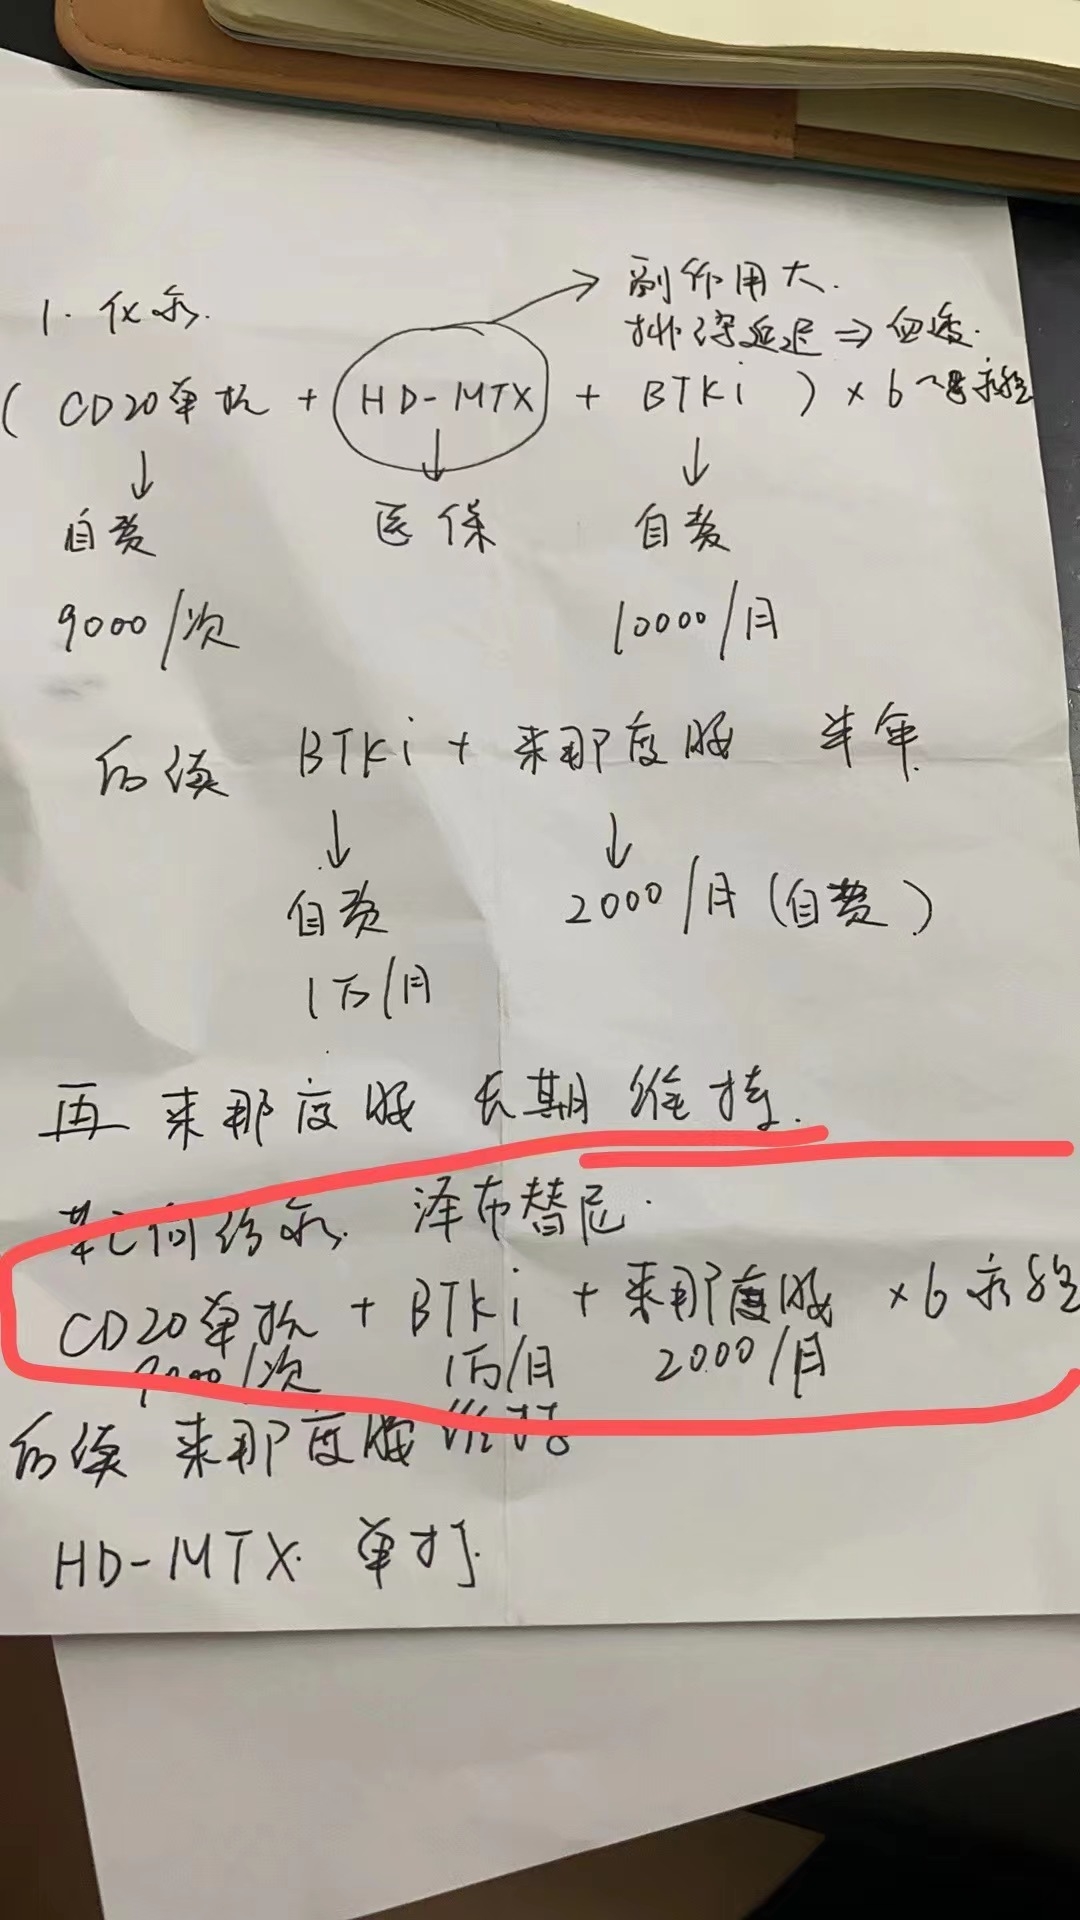 1. 化疗.
副作用大.
排泄延迟 ⇒ 血透.
( CD20单抗 + HD-MTX + BTKi ) × 6个疗程
自费 医保 自费
9000/次 10000/月
后续 BTKi + 来那度胺 半年
自费 2000/月 (自费)
1万/月
再 来那度胺 长期 维持.
靶向治疗 泽布替尼.
CD20单抗 + BTKi + 来那度胺 ×6疗程
9000/次 1万/月 2000/月
后续 来那度胺 维持
HD-MTX 单打.